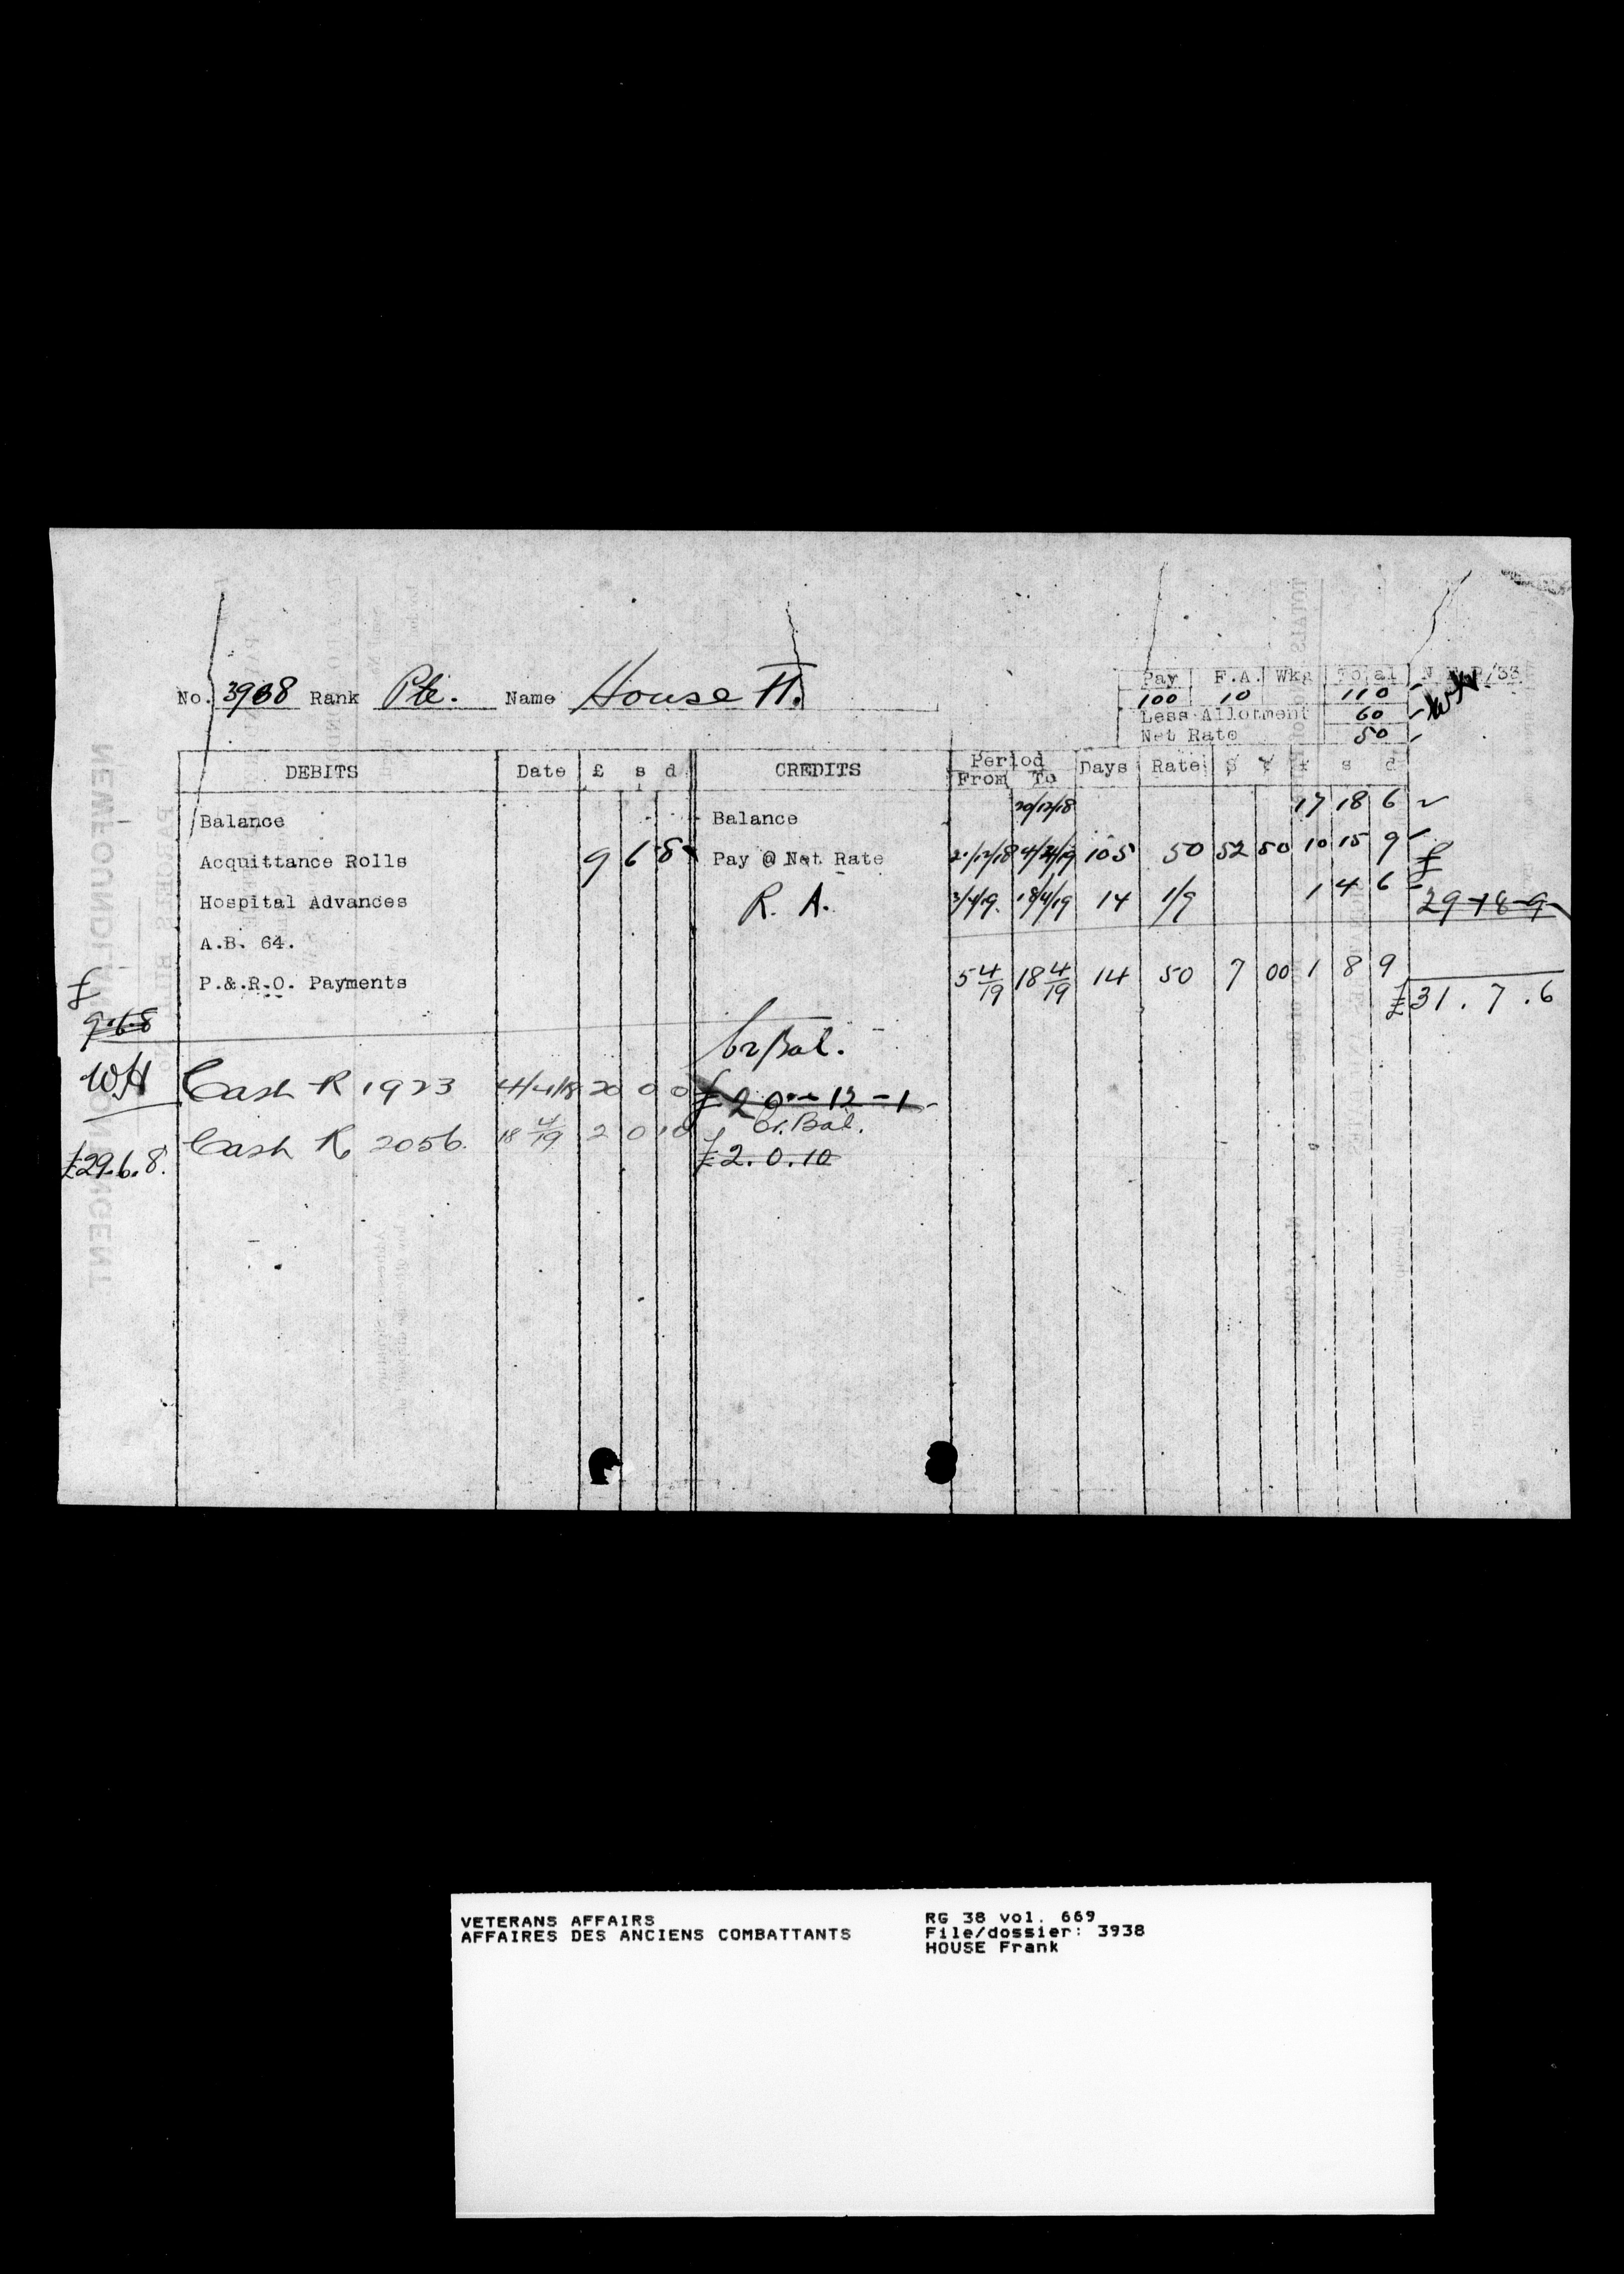 No. 3938 Rank Pte. Name House F.
Pay F.A. Wkg Total N.F.P/33
100 10 110
Less Allotment 60
Net Rate 50
DEBITS Date £ s d CREDITS Period From To Days Rate $ ¢ £ s d
Balance Balance 20/12/18 17 18 6
Acquittance Rolls 9 6 8 Pay @ Net Rate 21/12/18 4/4/19 105 50 52 50 10 15 9
Hospital Advances R. A. 5/4/19 18/4/19 14 1/9 1 4 6
£ 29-18-9
A.B. 64.
P.&.R.O. Payments 5 4/19 18 4/19 14 50 7 00 1 8 9
£31.7.6
£
9.6.8
Cr Bal.
WH Cash R 1923 4/4/18 20 0 0 £20-12-1
Cr. Bal.
£29.6.8. Cash R 2056. 18 4/19 2 0 10 £2.0.10
NEWFOUNDLAND CONTINGENT
VETERANS AFFAIRS
AFFAIRES DES ANCIENS COMBATTANTS
RG 38 vol. 669
File/dossier: 3938
HOUSE Frank